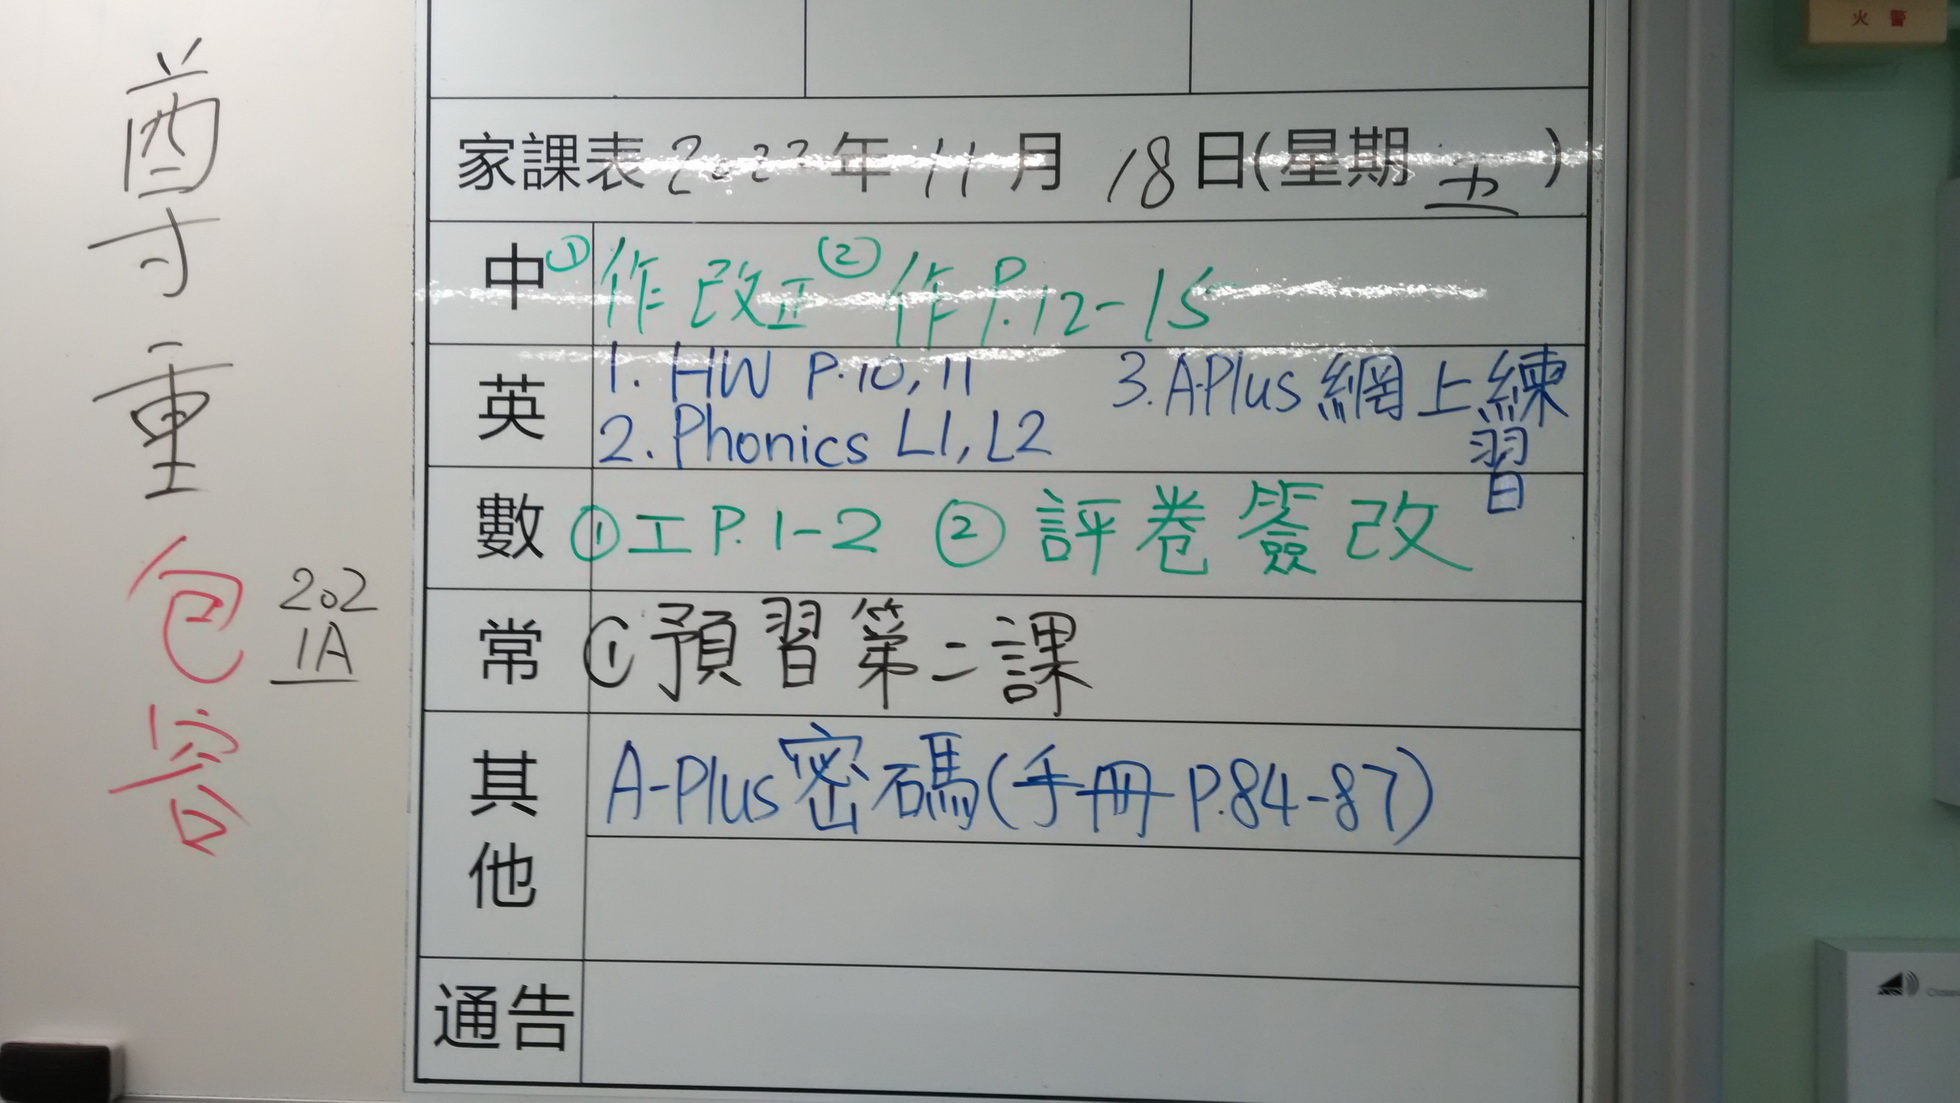 尊重
包容
202
1A
家課表 2022年 11月 18日(星期 五)
中 ① 作改正 ② 作 P.12-15
英 1. HW P.10, 11 3. A-Plus 網上練習
2. Phonics L1, L2
數 ① 工 P.1-2 ② 評卷簽改
常 ① 預習第二課
其他 A-Plus 密碼(手冊 P.84-87)
通告
火警